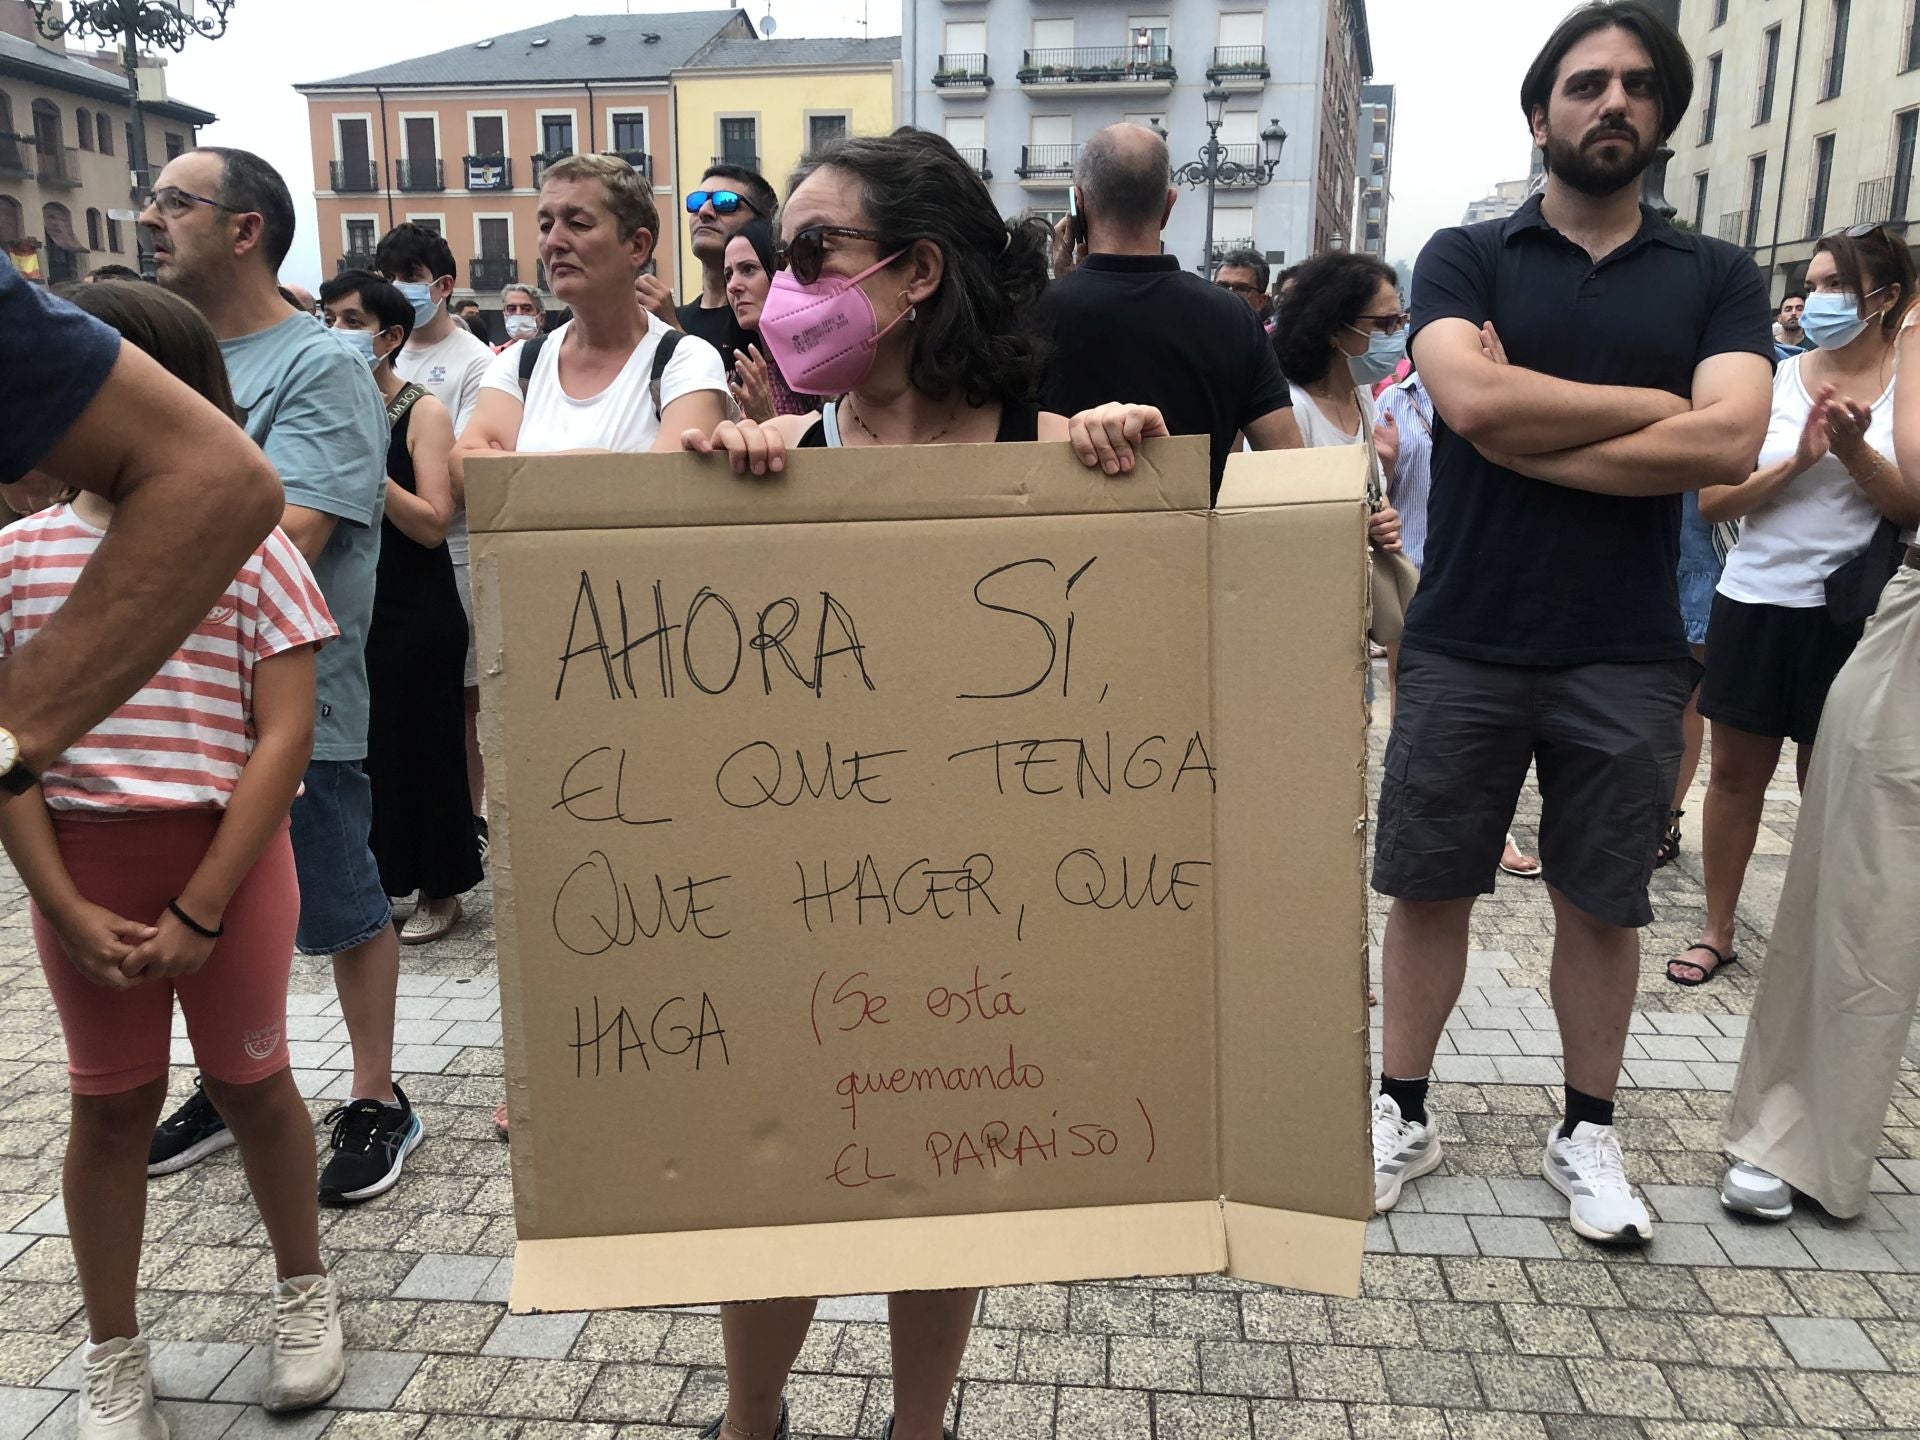 AHORA SÍ,
EL QUE TENGA
QUE HACER, QUE
HAGA (Se está
quemando
EL PARAISO)
LOEWE